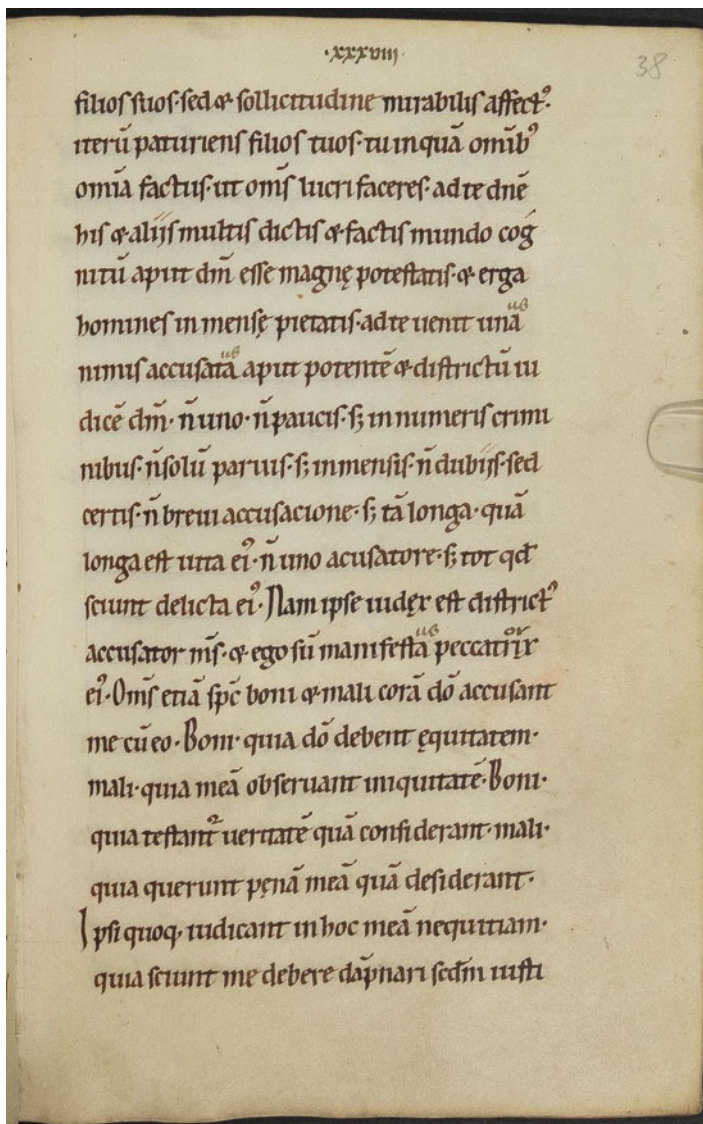 ·xxxviii·
38
filios suos· sed & sollicitudine mirabilis affect᷒·
iterū paturiens filios tuos· tu inquā omīb᷒
omīa factus· ut om̄s lucri faceres· ad te dn̄e
his & alijs multis dictis & factis mundo cog
nitū aput dm̄ esse magnę potestatis· & erga
homines inmensę pietatis· ad te uenit unā us
nimis accusatā us aput potentē & districtū iu
dicē dm̄· n̄ uno· n̄ paucis· s; innumeris crimi
nibus· n̄ solū paruis· s; inmensis· n̄ dubijs· sed
certis· n̄ breui accusacione· s; tā longa· quā
longa est uita ei᷒· n̄ uno acusatore· s; tot qđ
sciunt delicta ei᷒· Nam ipse iudęx est district᷒
accusator m̄s· & ego sū manifestā us peccatrix or
ei᷒· Om̄s etiā sp̄c boni & mali corā dō accusant
me cū eo· Boni· quia dō debent ęquitatem·
mali· quia meā obseruant iniquitatē· Boni·
quia testant᷑ ueritatē quā considerant· mali·
quia querunt pęnā meā quā desiderant·
Ipsi quoq, iudicant in hoc meā nequitiam·
quia sciunt me debere dāpnari scdm̄ iusti